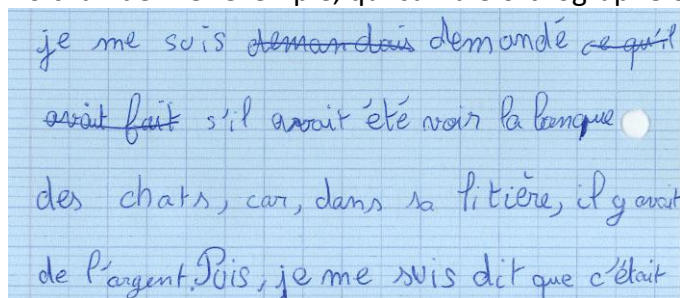 je me suis demandais demandé ce qu'il
avait fait s'il avait été voir la banque
des chats, car, dans sa litière, il y avait
de l'argent. Puis, je me suis dit que c'était